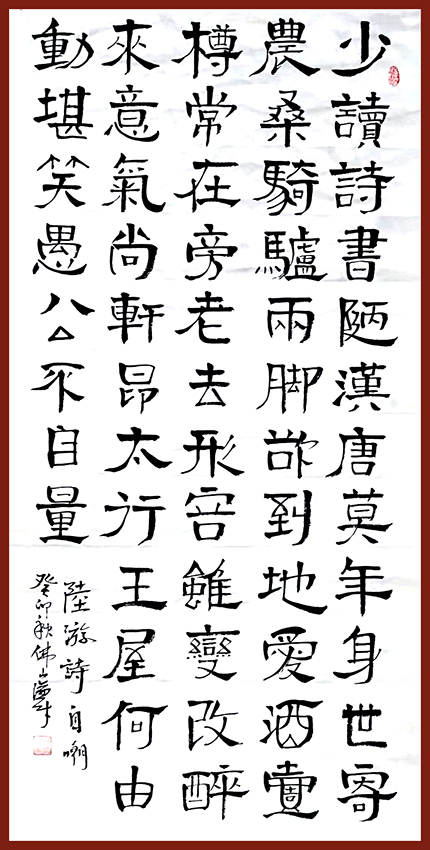 少讀詩書陋漢唐莫年身世寄
農桑騎驢兩脚欲到地愛酒壹
樽常在旁老去形容雖變改醉
來意氣尚軒昂太行王屋何由
動堪笑愚公不自量
陸游詩自嘲
癸卯秋佛山